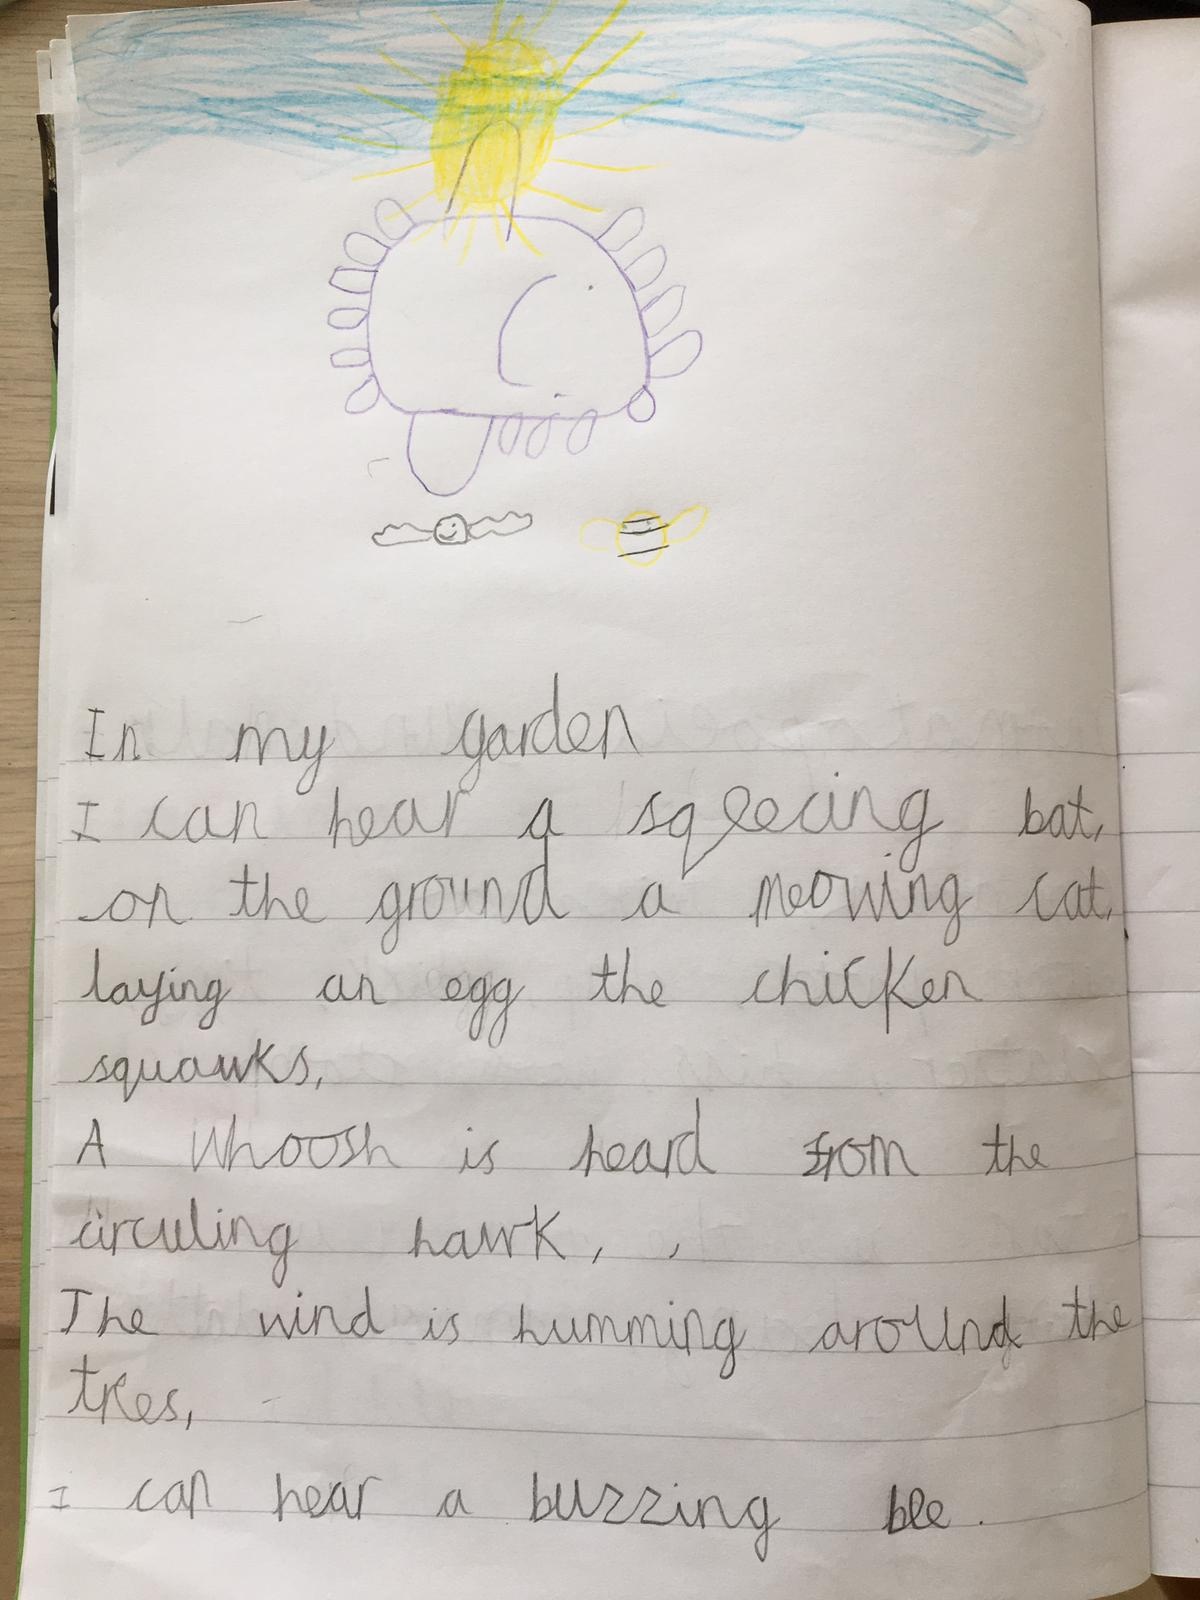 In my garden
I can hear a sqeecing bat,
on the ground a meowing cat,
laying an egg the chicken
squawks,
A whoosh is heard from the
circuling hawk, ,
The wind is humming around the
trees,
I can hear a buzzing bee.